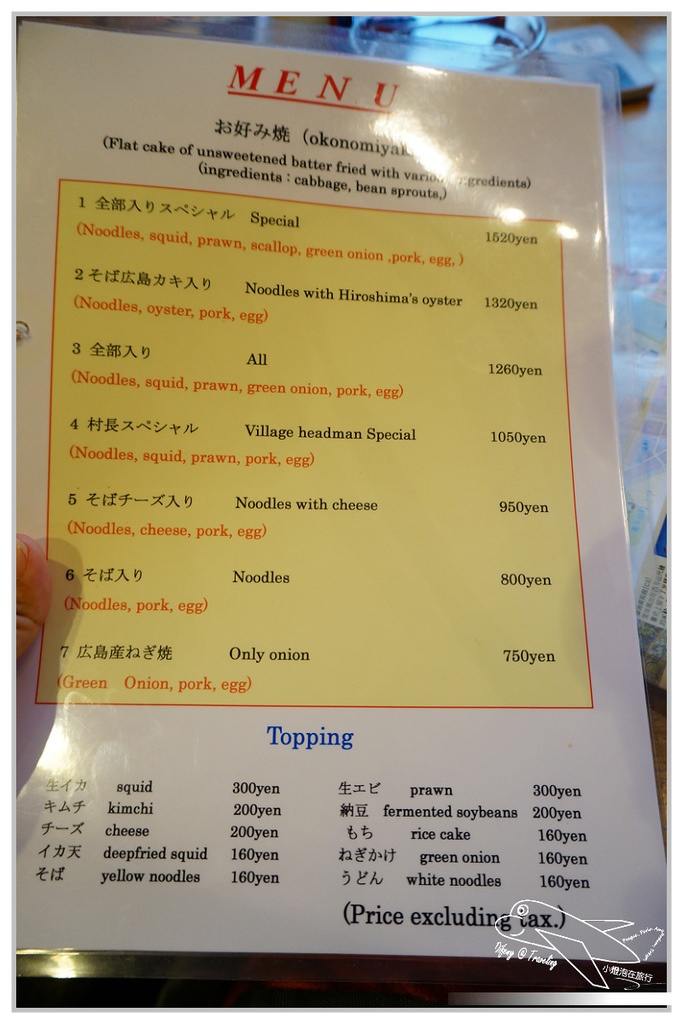 MENU
お好み焼 (okonomiyak
(Flat cake of unsweetened batter fried with
(ingredients : cabbage, bean sprouts,)
1 全部入りスペシャル Special 1520yen
(Noodles, squid, prawn, scallop, green onion ,pork, egg, )
2 そば広島カキ入り Noodles with Hiroshima's oyster 1320yen
(Noodles, oyster, pork, egg)
3 全部入り All 1260yen
(Noodles, squid, prawn, green onion, pork, egg)
4 村長スペシャル Village headman Special 1050yen
(Noodles, squid, prawn, pork, egg)
5 そばチーズ入り Noodles with cheese 950yen
(Noodles, cheese, pork, egg)
6 そば入り Noodles 800yen
(Noodles, pork, egg)
7 広島産ねぎ焼 Only onion 750yen
(Green Onion, pork, egg)
Topping
生イカ squid 300yen 生エビ prawn 300yen
キムチ kimchi 200yen 納豆 fermented soybeans 200yen
チーズ cheese 200yen もち rice cake 160yen
イカ天 deepfried squid 160yen ねぎかけ green onion 160yen
そば yellow noodles 160yen うどん white noodles 160yen
(Price excluding tax.)
@ Traveling
小燈泡在旅行